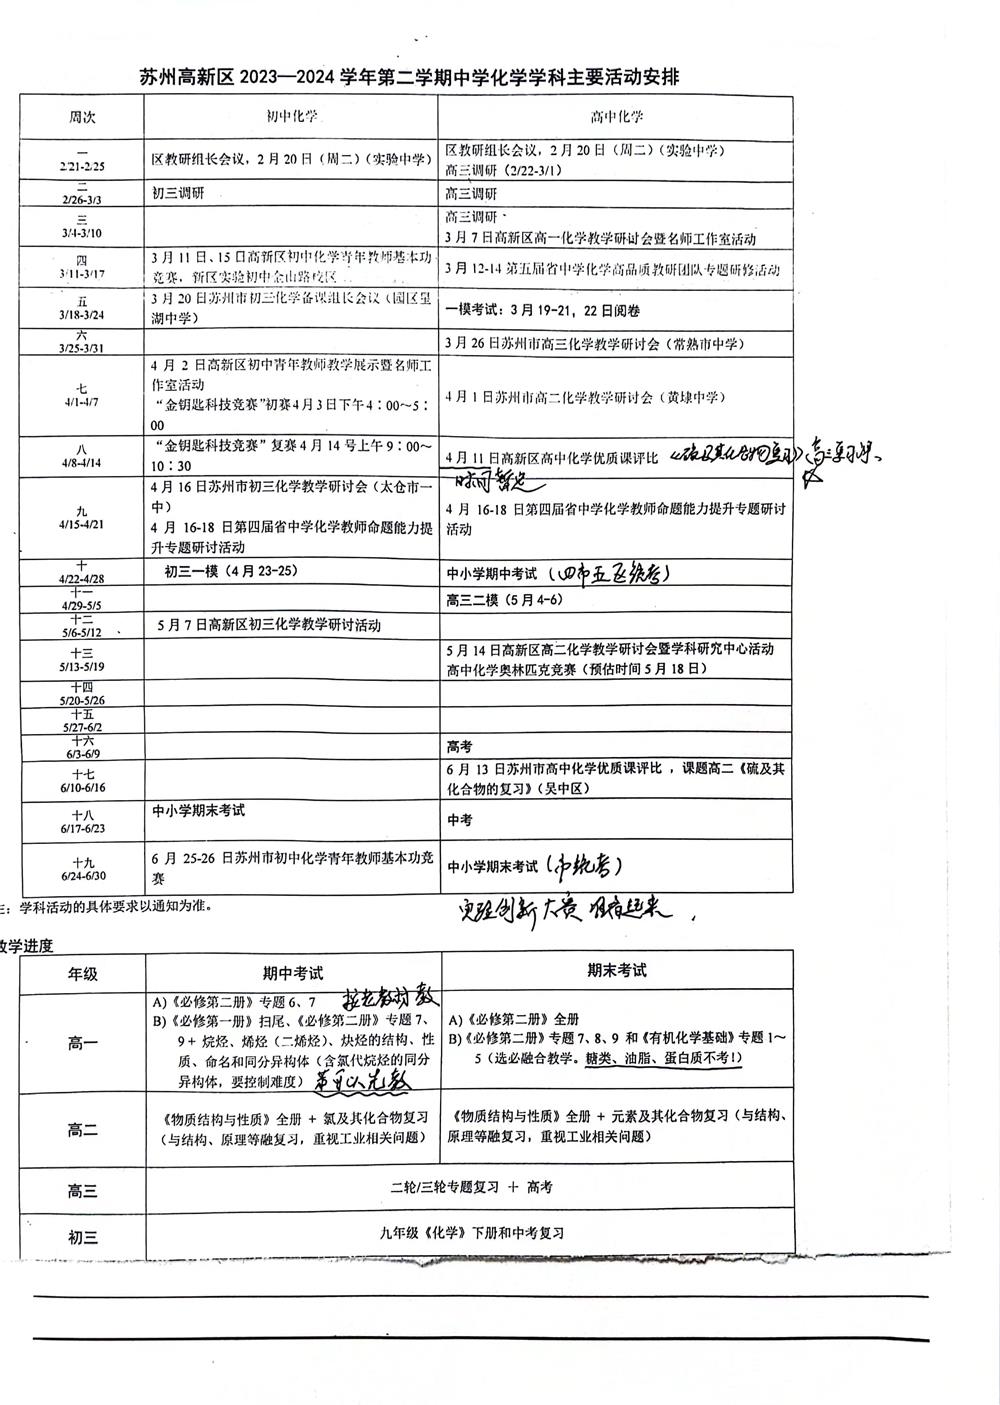 苏州高新区 2023—2024 学年第二学期中学化学学科主要活动安排
周次 初中化学 高中化学
一
2/21-2/25
区教研组长会议，2 月 20 日（周二）（实验中学）
区教研组长会议，2 月 20 日（周二）（实验中学）
高三调研（2/22-3/1）
二
2/26-3/3
初三调研
高三调研
三
3/4-3/10
高三调研
3 月 7 日高新区高一化学教学研讨会暨名师工作室活动
四
3/11-3/17
3 月 11 日、15 日高新区初中化学青年教师基本功
竞赛，新区实验初中金山路校区
3 月 12-14 第五届省中学化学高品质教研团队专题研修活动
五
3/18-3/24
3 月 20 日苏州市初三化学备课组长会议（园区星
湖中学）
一模考试：3 月 19-21，22 日阅卷
六
3/25-3/31
3 月 26 日苏州市高三化学教学研讨会（常熟市中学）
七
4/1-4/7
4 月 2 日高新区初中青年教师教学展示暨名师工
作室活动
“金钥匙科技竞赛”初赛 4 月 3 日下午 4：00～5：
00
4 月 1 日苏州市高二化学教学研讨会（黄埭中学）
八
4/8-4/14
“金钥匙科技竞赛”复赛 4 月 14 号上午 9：00～
10：30
4 月 11 日高新区高中化学优质课评比 《硫及其化合物复习》高三复习课、
时间暂定
九
4/15-4/21
4 月 16 日苏州市初三化学教学研讨会（太仓市一
中）
4 月 16-18 日第四届省中学化学教师命题能力提
升专题研讨活动
4 月 16-18 日第四届省中学化学教师命题能力提升专题研讨
活动
十
4/22-4/28
初三一模（4 月 23-25）
中小学期中考试（四市五区统考）
十一
4/29-5/5
高三二模（5 月 4-6）
十二
5/6-5/12
5 月 7 日高新区初三化学教学研讨活动
十三
5/13-5/19
5 月 14 日高新区高二化学教学研讨会暨学科研究中心活动
高中化学奥林匹克竞赛（预估时间 5 月 18 日）
十四
5/20-5/26
十五
5/27-6/2
十六
6/3-6/9
高考
十七
6/10-6/16
6 月 13 日苏州市高中化学优质课评比 ，课题高二《硫及其
化合物的复习》（吴中区）
十八
6/17-6/23
中小学期末考试
中考
十九
6/24-6/30
6 月 25-26 日苏州市初中化学青年教师基本功竞
赛
中小学期末考试（市统考）
：学科活动的具体要求以通知为准。
实验创新大赛
教学进度
年级 期中考试 期末考试
高一
A)《必修第二册》专题 6、7 按老教材教
B)《必修第一册》扫尾、《必修第二册》专题 7、
9 + 烷烃、烯烃（二烯烃）、炔烃的结构、性
质、命名和同分异构体（含氯代烷烃的同分
异构体，要控制难度）
A)《必修第二册》全册
B)《必修第二册》专题 7、8、9 和《有机化学基础》专题 1～
5（选必融合教学。糖类、油脂、蛋白质不考！）
高二
《物质结构与性质》全册 + 氯及其化合物复习
（与结构、原理等融复习，重视工业相关问题）
《物质结构与性质》全册 + 元素及其化合物复习（与结构、
原理等融复习，重视工业相关问题）
高三 二轮/三轮专题复习 + 高考
初三 九年级《化学》下册和中考复习